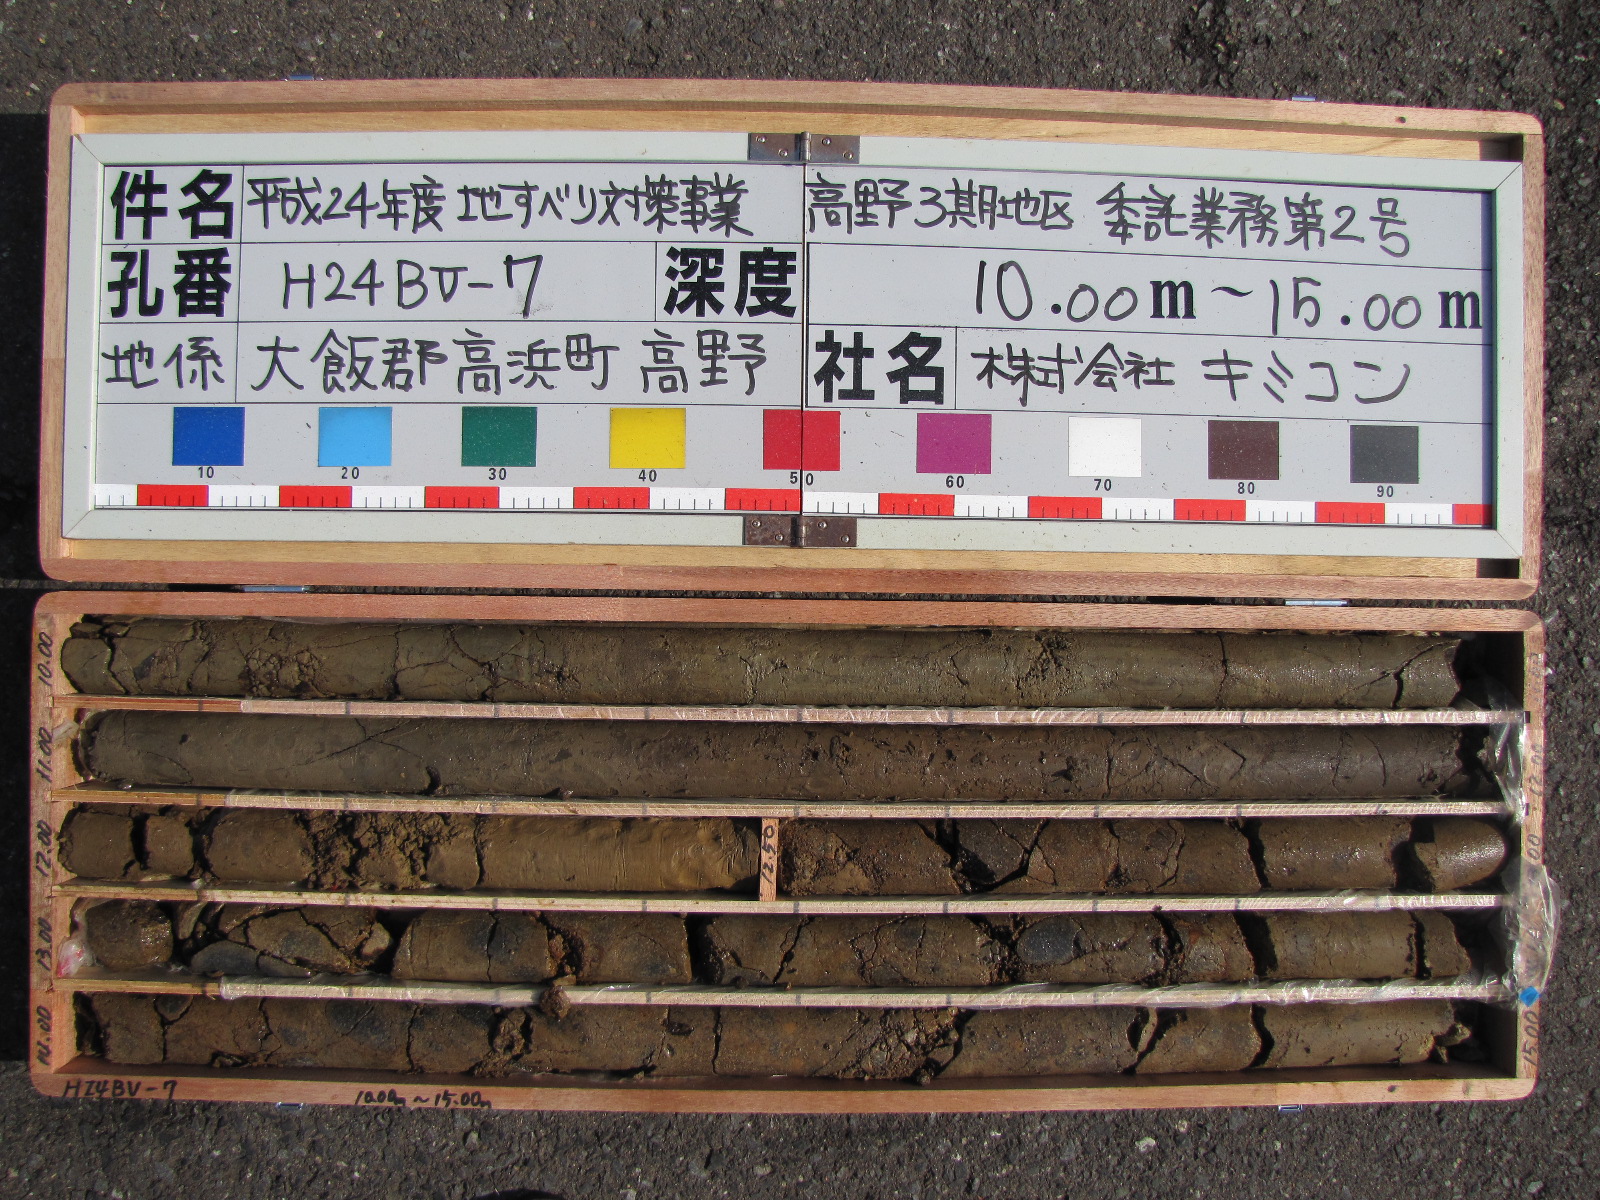 件名 平成24年度 地すべり対策事業 高野3期地区 委託業務第2号
孔番 H24BV-7 深度 10.00m～15.00m
地係 大飯郡高浜町 高野 社名 株式会社 キミコン
10 20 30 40 50 60 70 80 90
10.00
11.00
12.00
12.50
13.00
14.00
15.00
H24BV-7 10.00m～15.00m